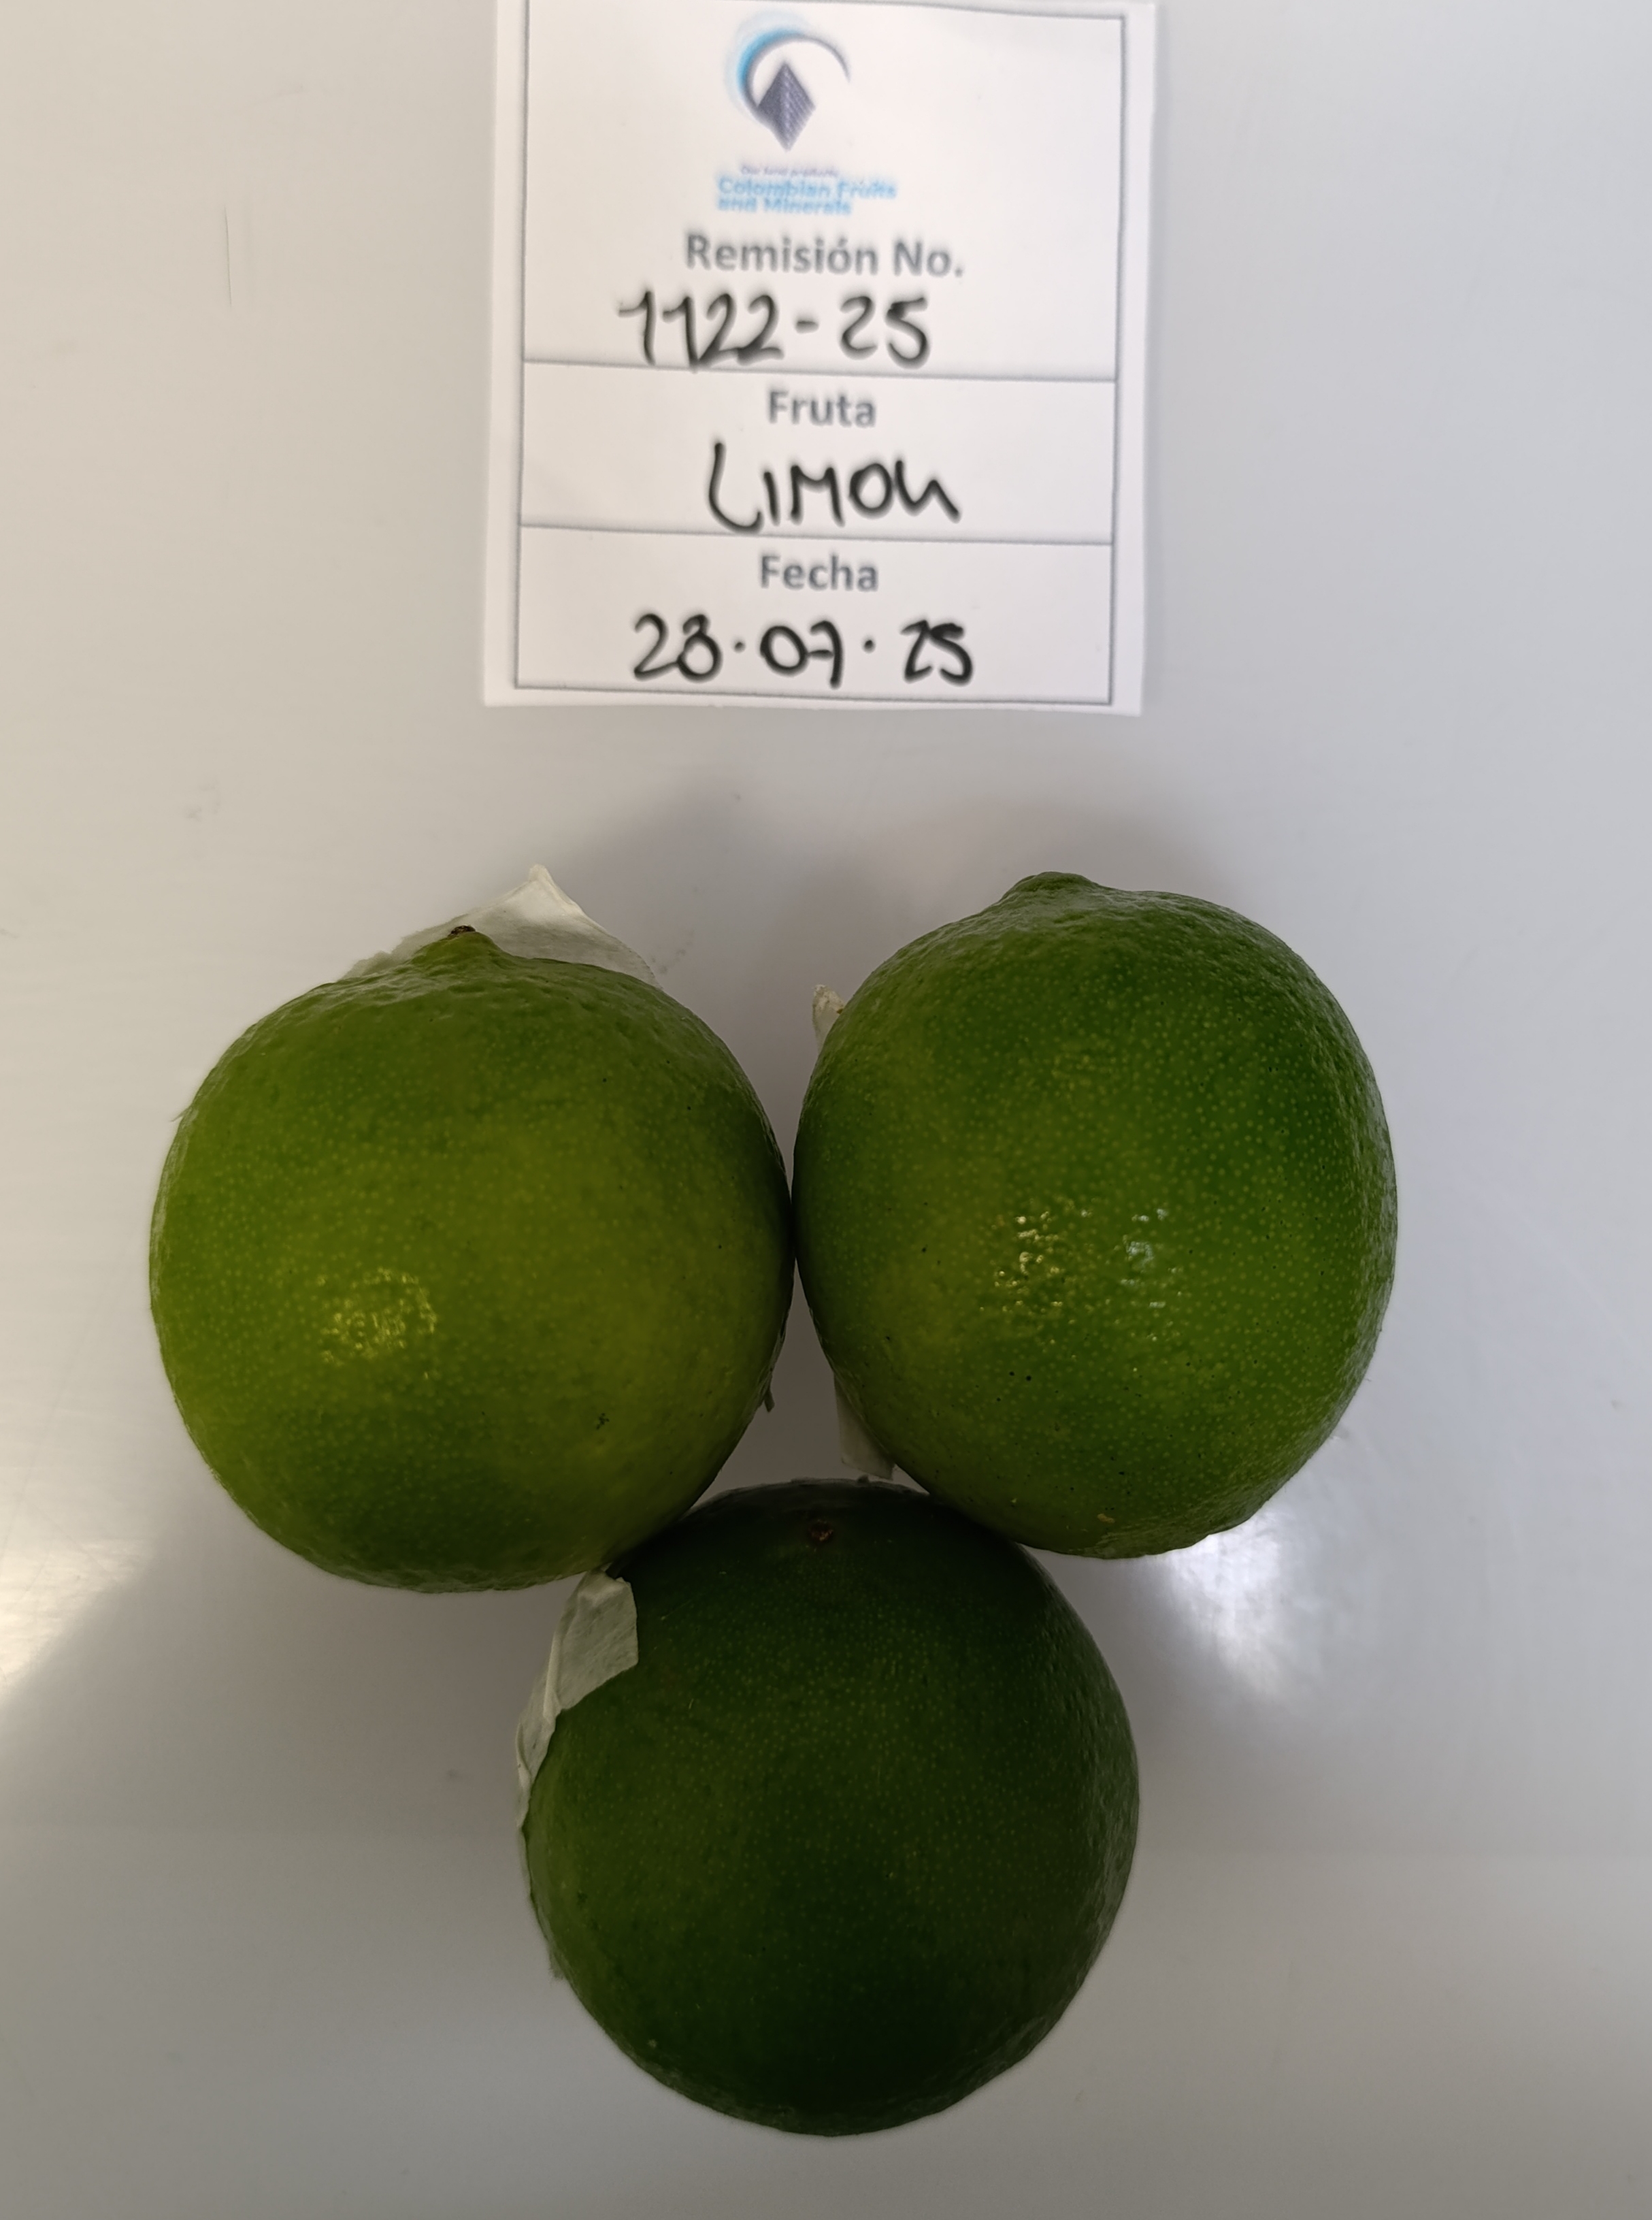 Our land products
Colombian Fruits
and Minerals
Remisión No.
1122-25
Fruta
LIMON
Fecha
28·07·25